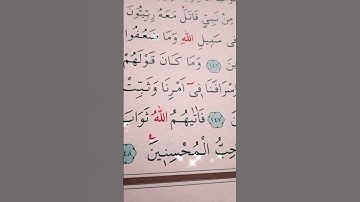 مِنْ نَبِيٍّ قَاتَلَ مَعَهُ رِبِّيُّونَ
فِى سَبِيلِ اللهِ وَمَا ضَعُفُوا
ينَ ﴿١٤٦﴾ وَمَا كَانَ قَوْلَهُمْ
اِسْرَافَنَا فِى اَمْرِنَا وَثَبِّتْ
نَ ﴿١٤٧﴾ فَاٰتٰيهُمُ اللهُ ثَوَابَ
حِبُّ الْمُحْسِنِينَ ﴿١٤٨﴾